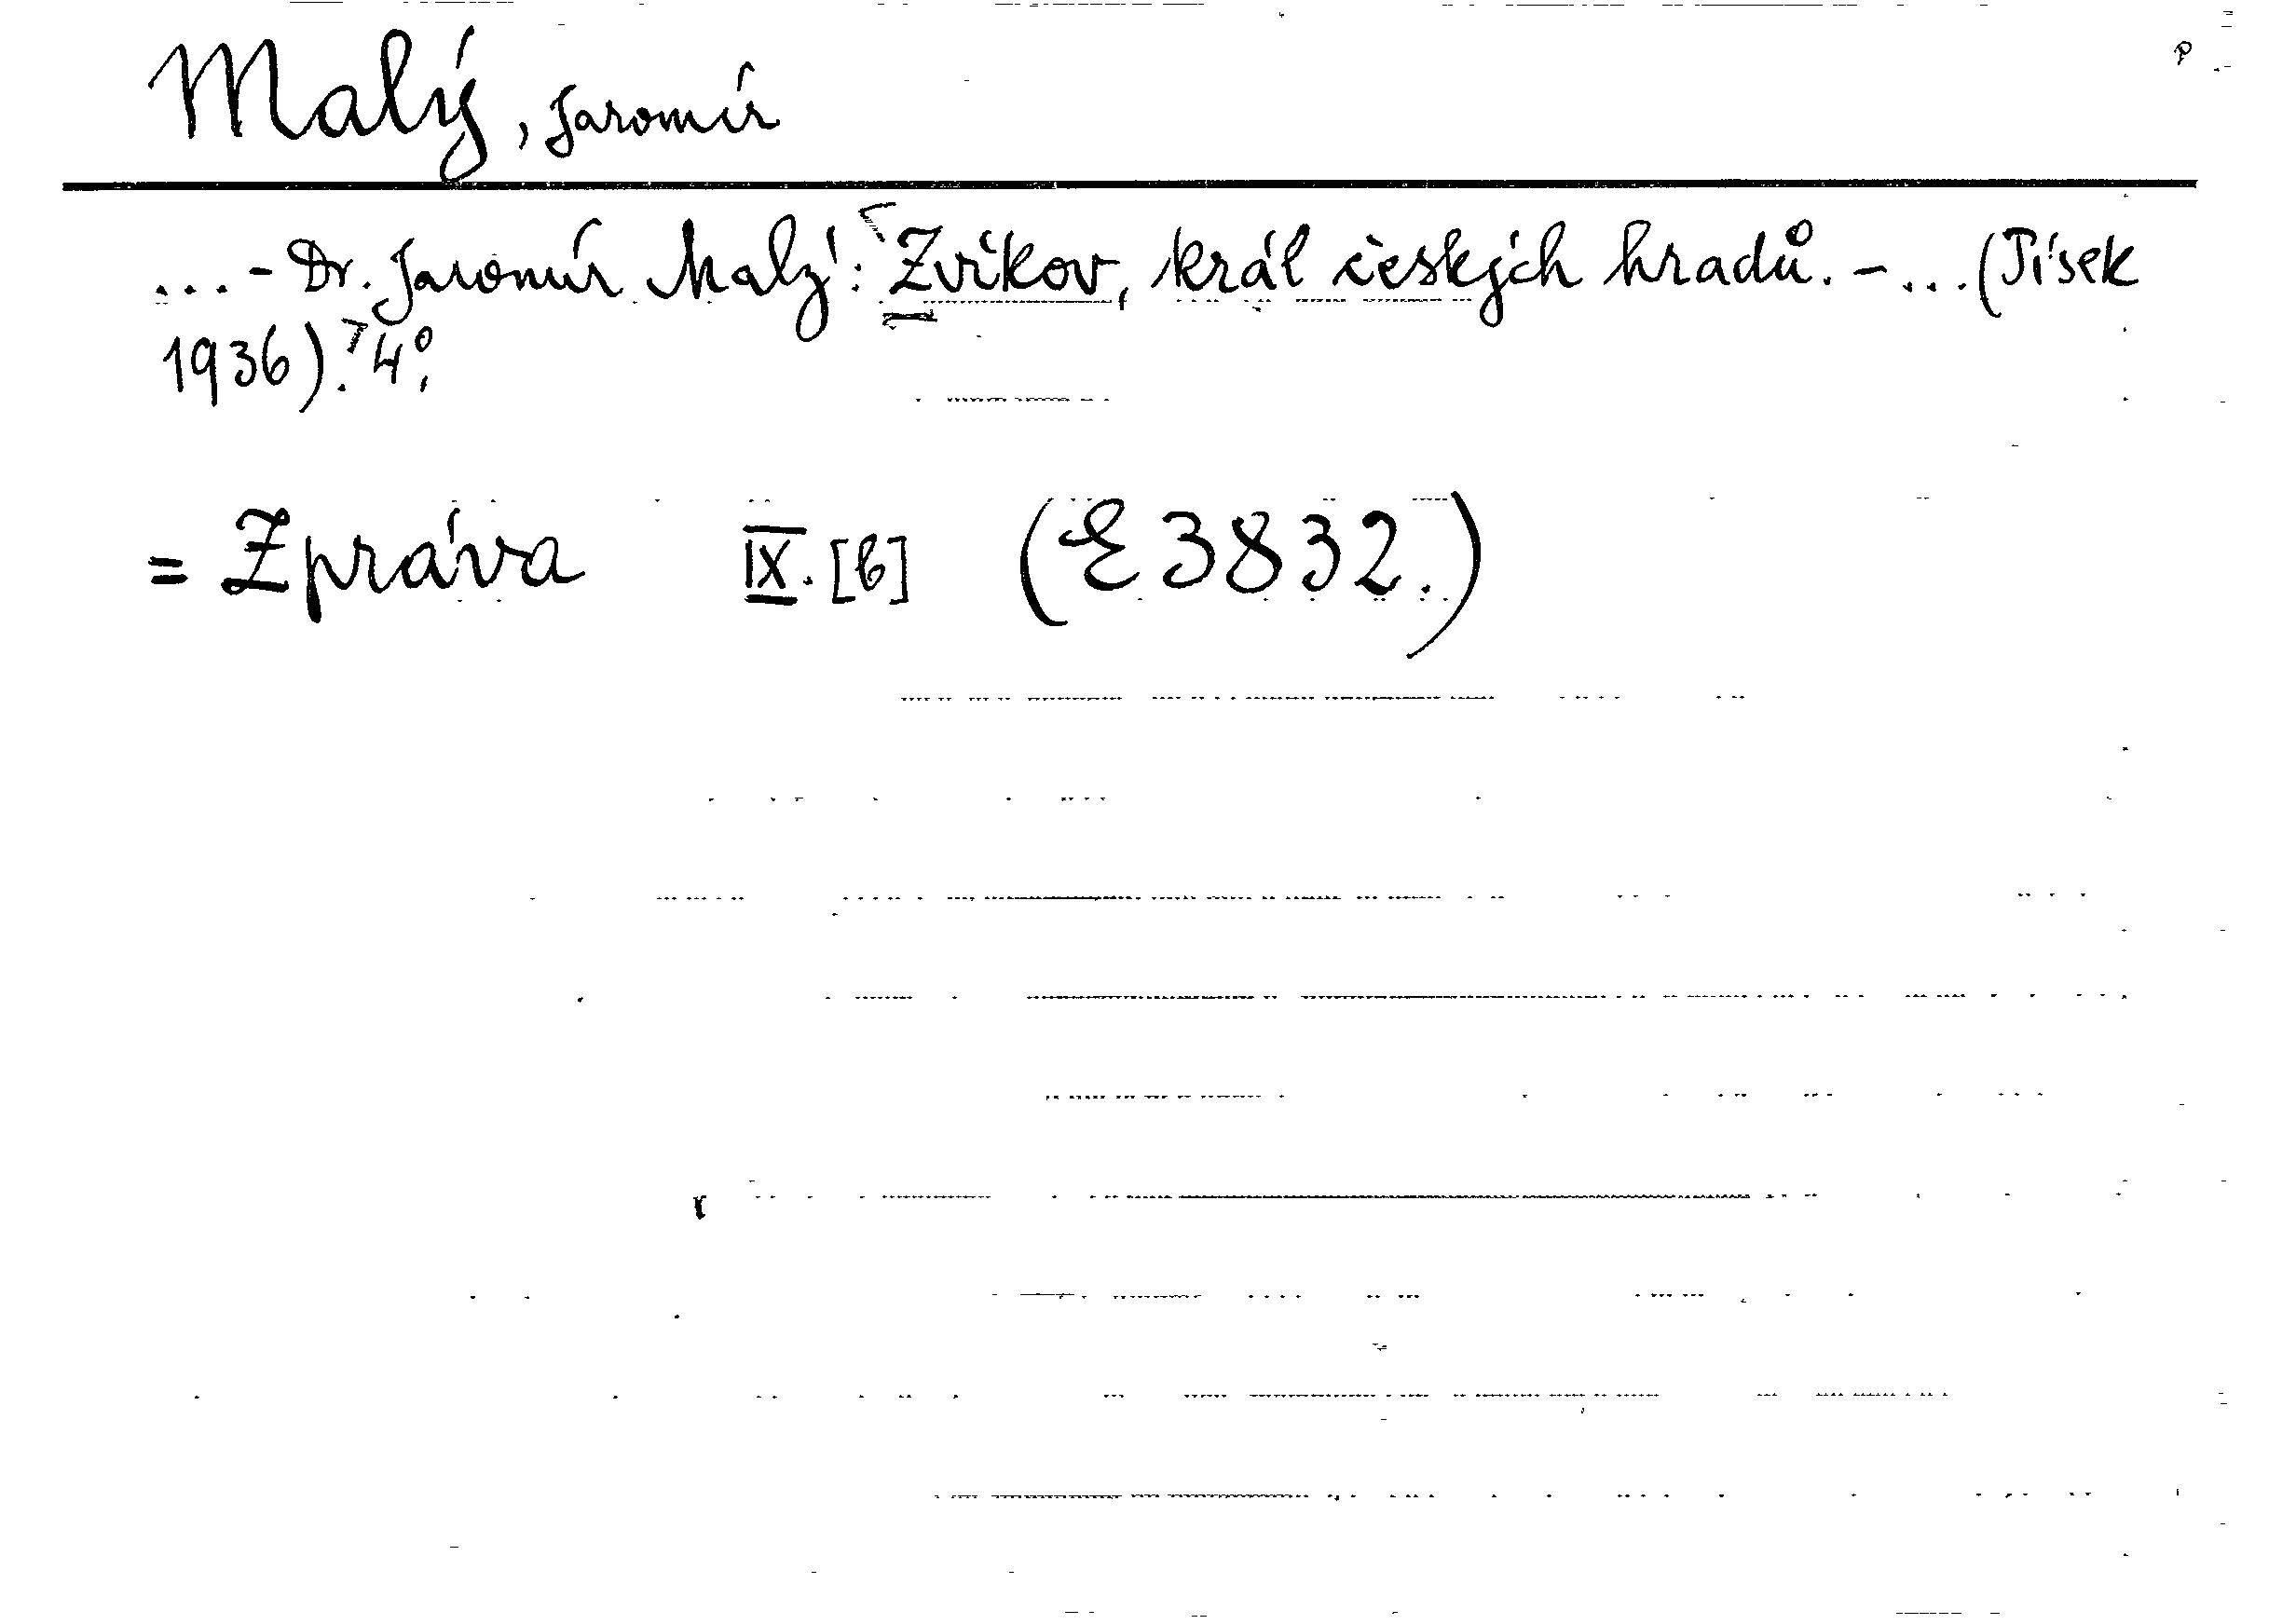 P
Malý, Jaromír
... - Dr. Jaromír Malý: Zvíkov, král českých hradů. - ... (Písek
1936). 4°.
= Zpráva IX. [b] (E 3832.)